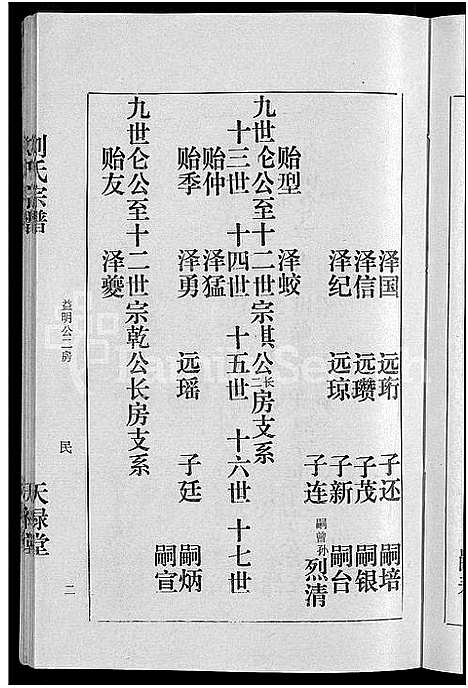 泽国 远珩 子还 嗣培
泽信 远瓒 子茂 嗣银
泽纪 远琼 子新 嗣台
子连 嗣曾孙烈清
贻型 泽蛟
九世仑公至十二世宗祺公二长房支系
十三世 十四世 十五世 十六世 十七世
贻仲 泽猛
贻季 泽勇 远瑶 子廷 嗣炳
嗣宣
九世仑公至十二世宗乾公长房支系
贻友 泽夔
刘氏宗谱
益明公二房
民
二
天禄堂
FamilySearch